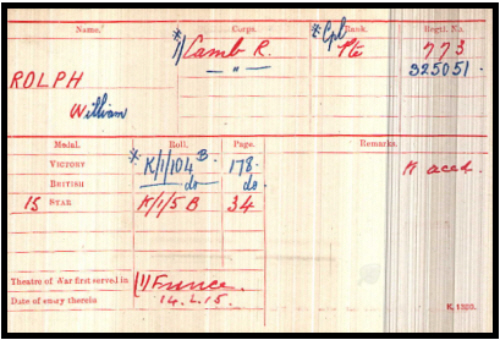 Name. Corps. Rank. Regtl. No.
* 1/Camb R. * Cpl Pte 773
— " — 325051.
ROLPH
William
Medal. Roll. Page. Remarks.
VICTORY * K/1/104 B. 178.
BRITISH do do.
15 STAR K/1/5 B 34
K
Theatre of War first served in (1) France.
Date of entry therein 14.2.15.
K. 1380.